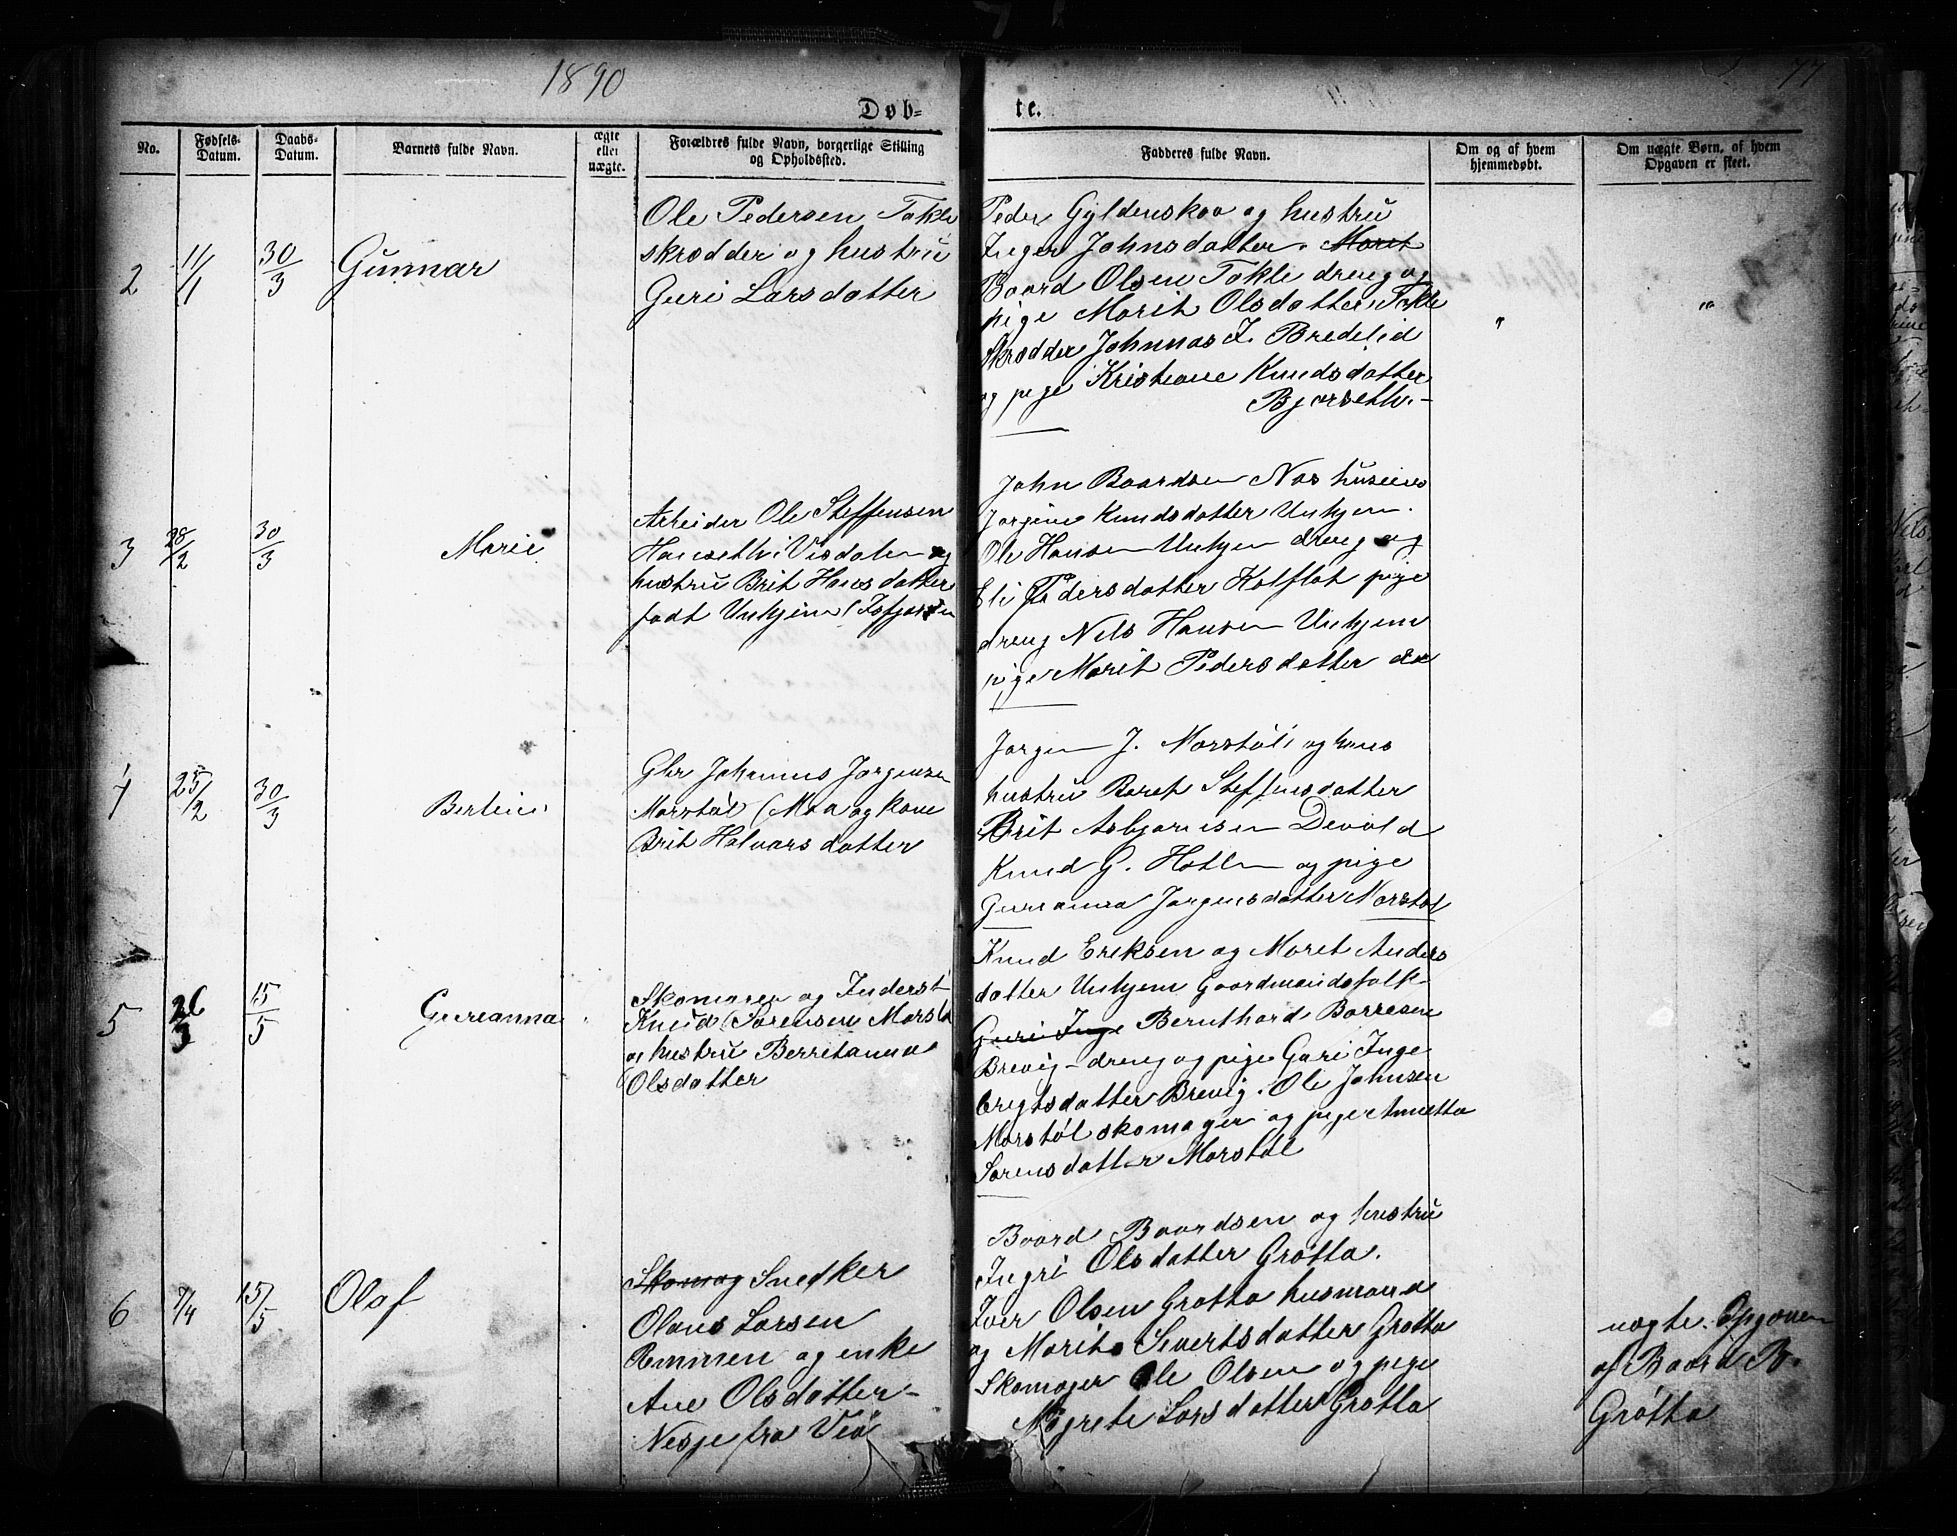 1890
77
Døb-
te.
No.
Fødsels-
Datum.
Daabs-
Datum.
Barnets fulde Navn.
ægte
eller
uægte.
Forældres fulde Navn, borgerlige Stilling
og Opholdssted.
Faddernes fulde Navn.
Om og af hvem
hjemmedøbt.
Om uægte Børn, af hvem
Opgaven er skeet.
2
11/1
30/3
Gunnar
Ole Pedersen Tokle
skrædder og hustru
Guri Larsdatter
Peder Gyldenskov og hustru
Inger Johnsdatter. Marit
Baard Olsen Tokle dreng og
pige Marit Olsdatter Tokle
Skrædder Johnnas J. Bredelid
og pige Kristiane Knudsdatter
Bjørseth.-
"
"
3
28/2
30/3
Marie
Arbeider Ole Steffensen
Hanseth i Visdalen og
hustru Brit Hansdatter
født Unhjem (Isfjorden
John Baardsen Norshuseines
Jørgine Knudsdatter Unhjem.
Ole Hansen Unhjem dreng og
Eli Pedersdatter Kolflot pige
dreng Nils Hansen Unhjem
pige Marit Pedersdatter
4
25/2
30/3
Bertine
Gbr Johannes Jørgensen
Morstøl (Moa og kone
Brit Halvarsdatter
Jørgen J. Morstøl og hans
hustru Beret Steffensdatter
Brit Asbjørnsen Devold
Knud G. Hollen og pige
Gurianna Jørgensdatter Morstøl
5
26/3
15/5
Gureanna
Skomager og Inderst
Knud Sørensen Morstøl
og hustru Berretanna
Olsdatter
Knud Eriksen og Marit Anders
datter Unhjem Gaardmandsfolk-
Guri Inge Bernthard Børresen
Brevig - dreng og pige Guri Inge
brigtsdatter Brevig. Ole Johnsen
Morstøl skomager og pige Annetta
Sørensdatter Morstøl
6
7/4
15/5
Olaf
Skomag Snedker
Olaus Larsen
Remmen og enke
Ane Olsdatter-
Nesje fra Veø
Baard Baardsen og hustru
Ingri Olsdatter Grøtta.
Iver Olsen Grøtta husmand
og Marit Sivertsdatter Grøtta
Skomager Ole Olsen og pige
Magrete Larsdatter Grøtta
uægte. Opgaven
af Baard B.
Grøtta